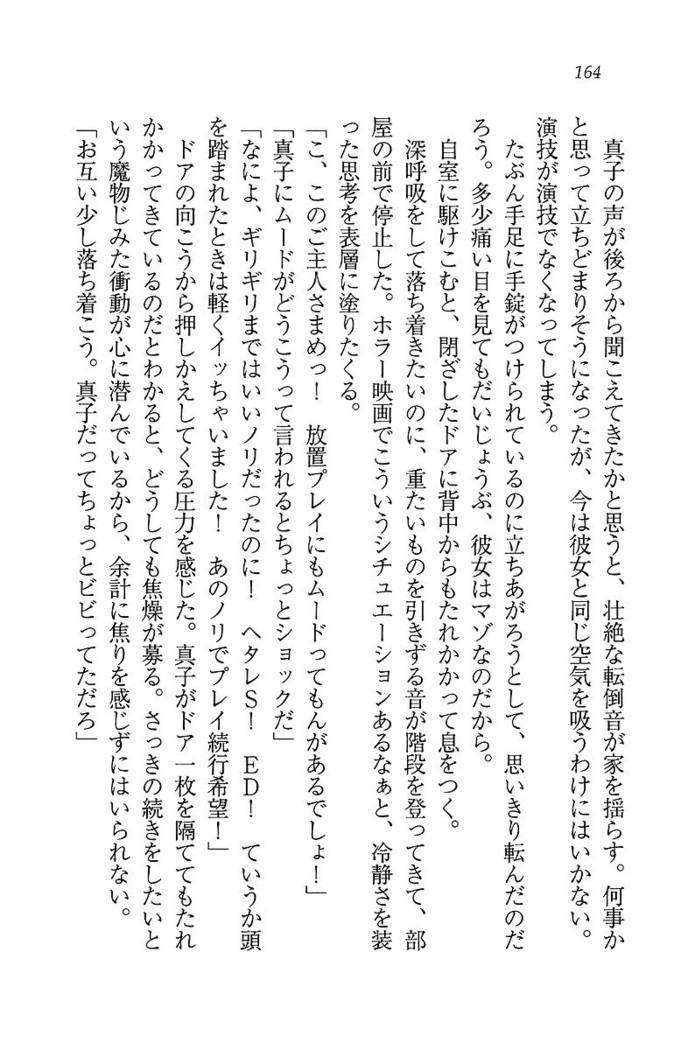 164
　真子の声が後ろから聞こえてきたかと思うと、壮絶な転倒音が家を揺らす。何事か
と思って立ちどまりそうになったが、今は彼女と同じ空気を吸うわけにはいかない。
演技が演技でなくなってしまう。
　たぶん手足に手錠がつけられているのに立ちあがろうとして、思いきり転んだのだ
ろう。多少痛い目を見てもだいじょうぶ、彼女はマゾなのだから。
　自室に駆けこむと、閉ざしたドアに背中からもたれかかって息をつく。
　深呼吸をして落ち着きたいのに、重たいものを引きずる音が階段を登ってきて、部
屋の前で停止した。ホラー映画でこういうシチュエーションあるなぁと、冷静さを装
った思考を表層に塗りたくる。
「こ、このご主人さまめっ！　放置プレイにもムードってもんがあるでしょ！」
「真子にムードがどうこうって言われるとちょっとショックだ」
「なによ、ギリギリまではいいノリだったのに！　ヘタレS！　ED！　ていうか頭
を踏まれたときは軽くイッちゃいました！　あのノリでプレイ続行希望！」
　ドアの向こうから押しかえしてくる圧力を感じた。真子がドア一枚を隔ててもたれ
かかってきているのだとわかると、どうしても焦燥が募る。さっきの続きをしたいと
いう魔物じみた衝動が心に潜んでいるから、余計に焦りを感じずにはいられない。
「お互い少し落ち着こう。真子だってちょっとビビってただろ」